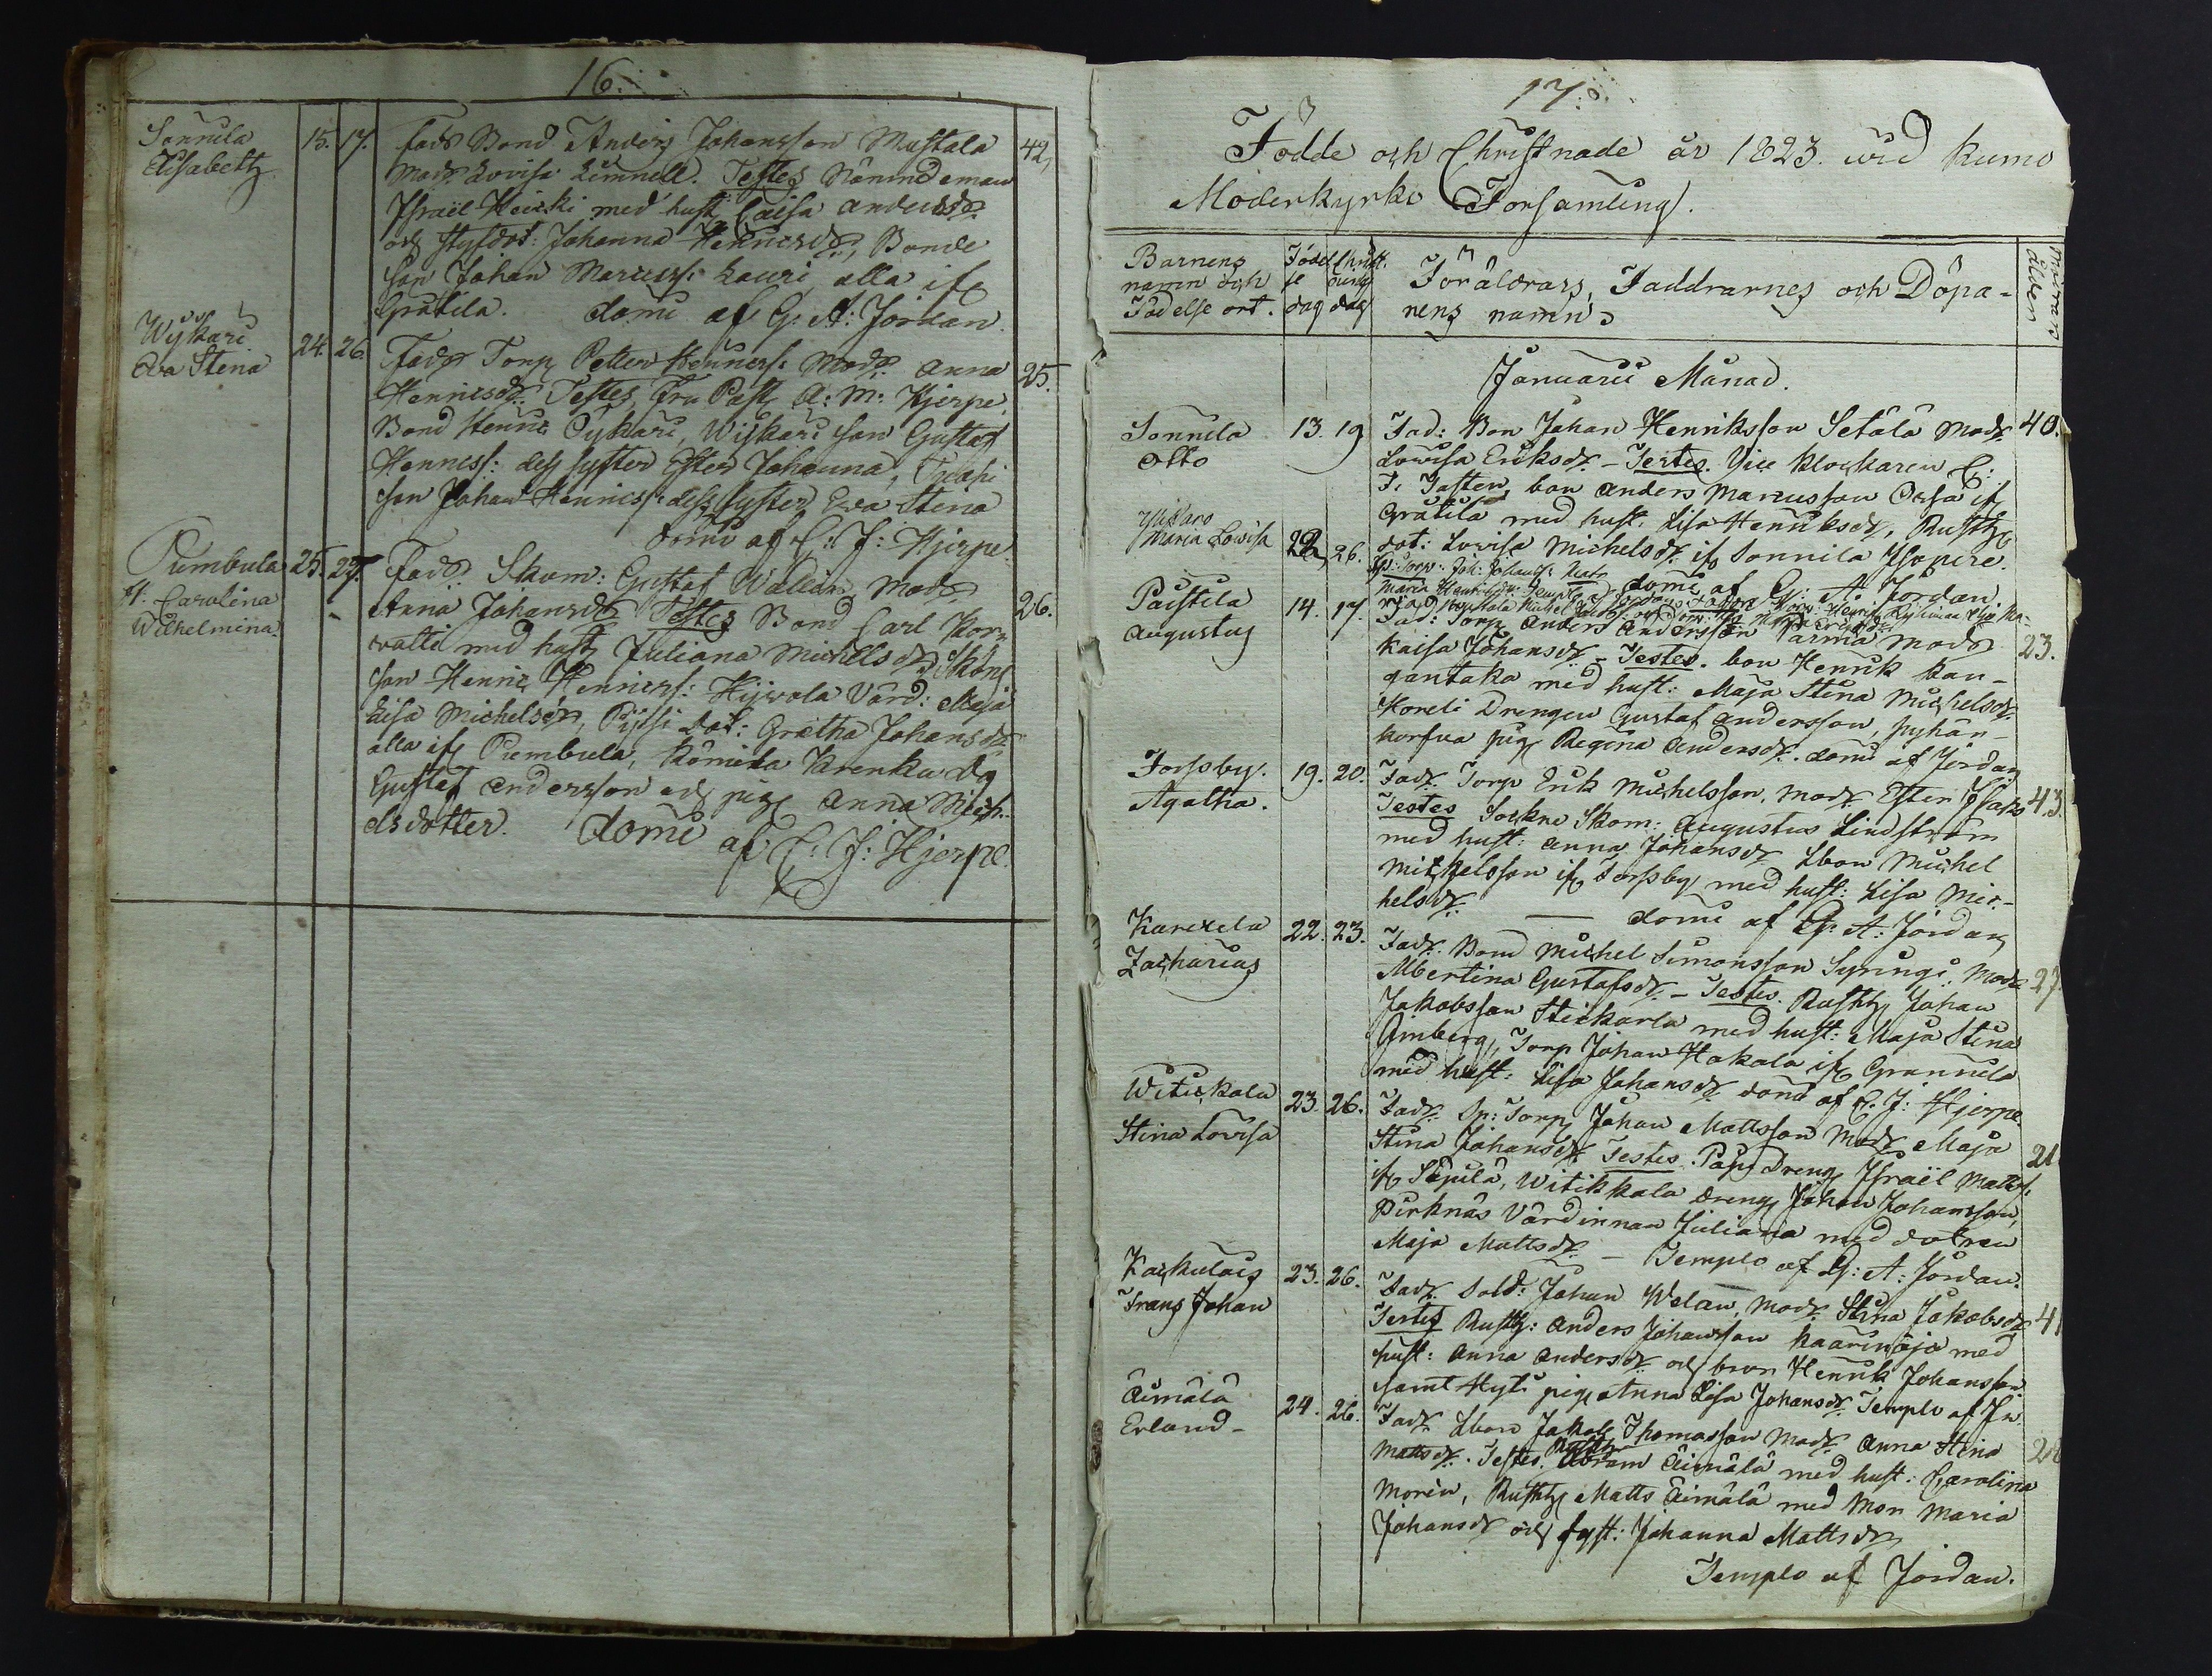 16.
Sonnila
Elisabeth
15. 17.
Fadr Bond Anders Johansson Mustala
Modr. Lovisa Limnell. Testes Nämndeman
Israël Heicki med hust. Caisa Andersdr
och styfdot: Johanna Henricsdr, Bonde
son Johan Marcuss: Lauri, alla if
Grätila. domi af G. A: Jordan.
42,
Wijkari
Eva Stina
24. 26.
Fadr Torp. Petter Henricss: Modr. Anna
Henricsdr. Testes, Fru Past. A: M: Hjerpe,
Bond Henric Öykari, Wijkari son Gustaf
Henricss: dess syster Ester Johanna,
son Johan Henricss: dess syster Eva Stina
domi af C: J: Hjerpe.
25.
Pumbula
H: Carolina
Wilhelmina
25. 27.
Fadr. Skom: Gustaf Wallin, Modr
Anna Johansdr Testes Bond Carl Kor-
valti med hust. Juliana Michelsdr,
son Henric Henricss: Hijvola Värd: Maja
Lisa Michelsdr, Pijssi Dot: Gretha Johansdr
alla if Pumbula, Kömikä Krenku dg
Gustaf Andersson och pig. Anna Mich-
elsdotter. domi
af C: J: Hjerpe.
26.
17.
Födde och Christnade år 1823. wid Kumo
Moderkyrko Församling.
Barnens
namn och
Födelse ort.
Födel
se
dag
Christ.
nings
dag
Föräldrars, Faddrarnes och Döpa-
rens namn
Modrens
ålder
Januarii Månad.
Sonnila
Otto
13. 19
Fad: Bon Johan Henriksson Setälä Modr
Lowisa Eriksdr - Testes. Vice Klockaren C:
F. Fasten, bon Anders Marcusson Ossa if
Grätilä med hust. Lisa Henriksdr, Rusth
dot: Lovisa Michelsdr if Sonnila Ylopere.
domi af G: A: Jordan
40.
Ylistaro
Maria Lowisa
22, 26.
Sp: Torp: Joh: Johanss:
Maria Henriksdr: Templo af Jordan
Paistila
Augustus
14. 17.
Fad: Torp. Anders Andersson Parma Modr
Kaisa Johansdr - Testes. bon Henrik Kan-
gantaka med hust: Maja Stina Michelsdr
Koreli Drengen Gustaf Andersson, Pyhän-
korfua pig. Regina Andersdr. domi af Jordan
23.
Forssby.
Agatha.
19. 20.
Fadr. Torp Erik Michelsson, Modr Ester Isaks
Testes Sockne Skom: Augustus Lindström
med hust: Anna Johansdr Lbon Michel
Michelsson if Forssby med hust: Lisa Mic-
helsdr. — domi af G: A: Jordan
43.
Karexela
Zacharias
22. 23.
Fadr. Bond Michel Simonsson Syringi Modr
Albertina Gustafsdr - Testes. Rusth Johan
Jakobsson Stickarla med hust: Maja Stina
Amberg, Torp Johan Hakala if Grannila
med hust: Lisa Johansdr domi af C. J: Hjerpe.
27.
Witickala
Stina Lovisa
23. 26.
Fadr. Sp: Torp. Johan Mattsson Modr Maja
Stina Johansdr. Testes. Papi Dreng Israël Matts:
if Säpilä, Witikkala dreng Johan Johansson,
Pirknäs Värdinnan Juliana med dotren
Maja Mattsdr. — Templo af G: A: Jordan.
21
Kackulais
Frans Johan
23. 26.
Fadr. Sold: Johan Welan, Modr Stina Jakobsdr
Testes Rusth: Anders Johansson Kaarinoja med
hust: Anna Andersdr och bror Henrik Johansson
samt Hyti pig. Anna Lisa Johansdr. Templo af Jn.
41
Äimälä
Erland -
24. 26.
Fadr. Lbon Jakob Thomasson Modr Anna Stina
Mattsdr. Testes. Rusth Abram Äimälä med hust: Carolina
Morén, Rusth Matts Äimälä med Mon Maria
Johansdr och syst: Johanna Mattsdr
Templo af Jordan.